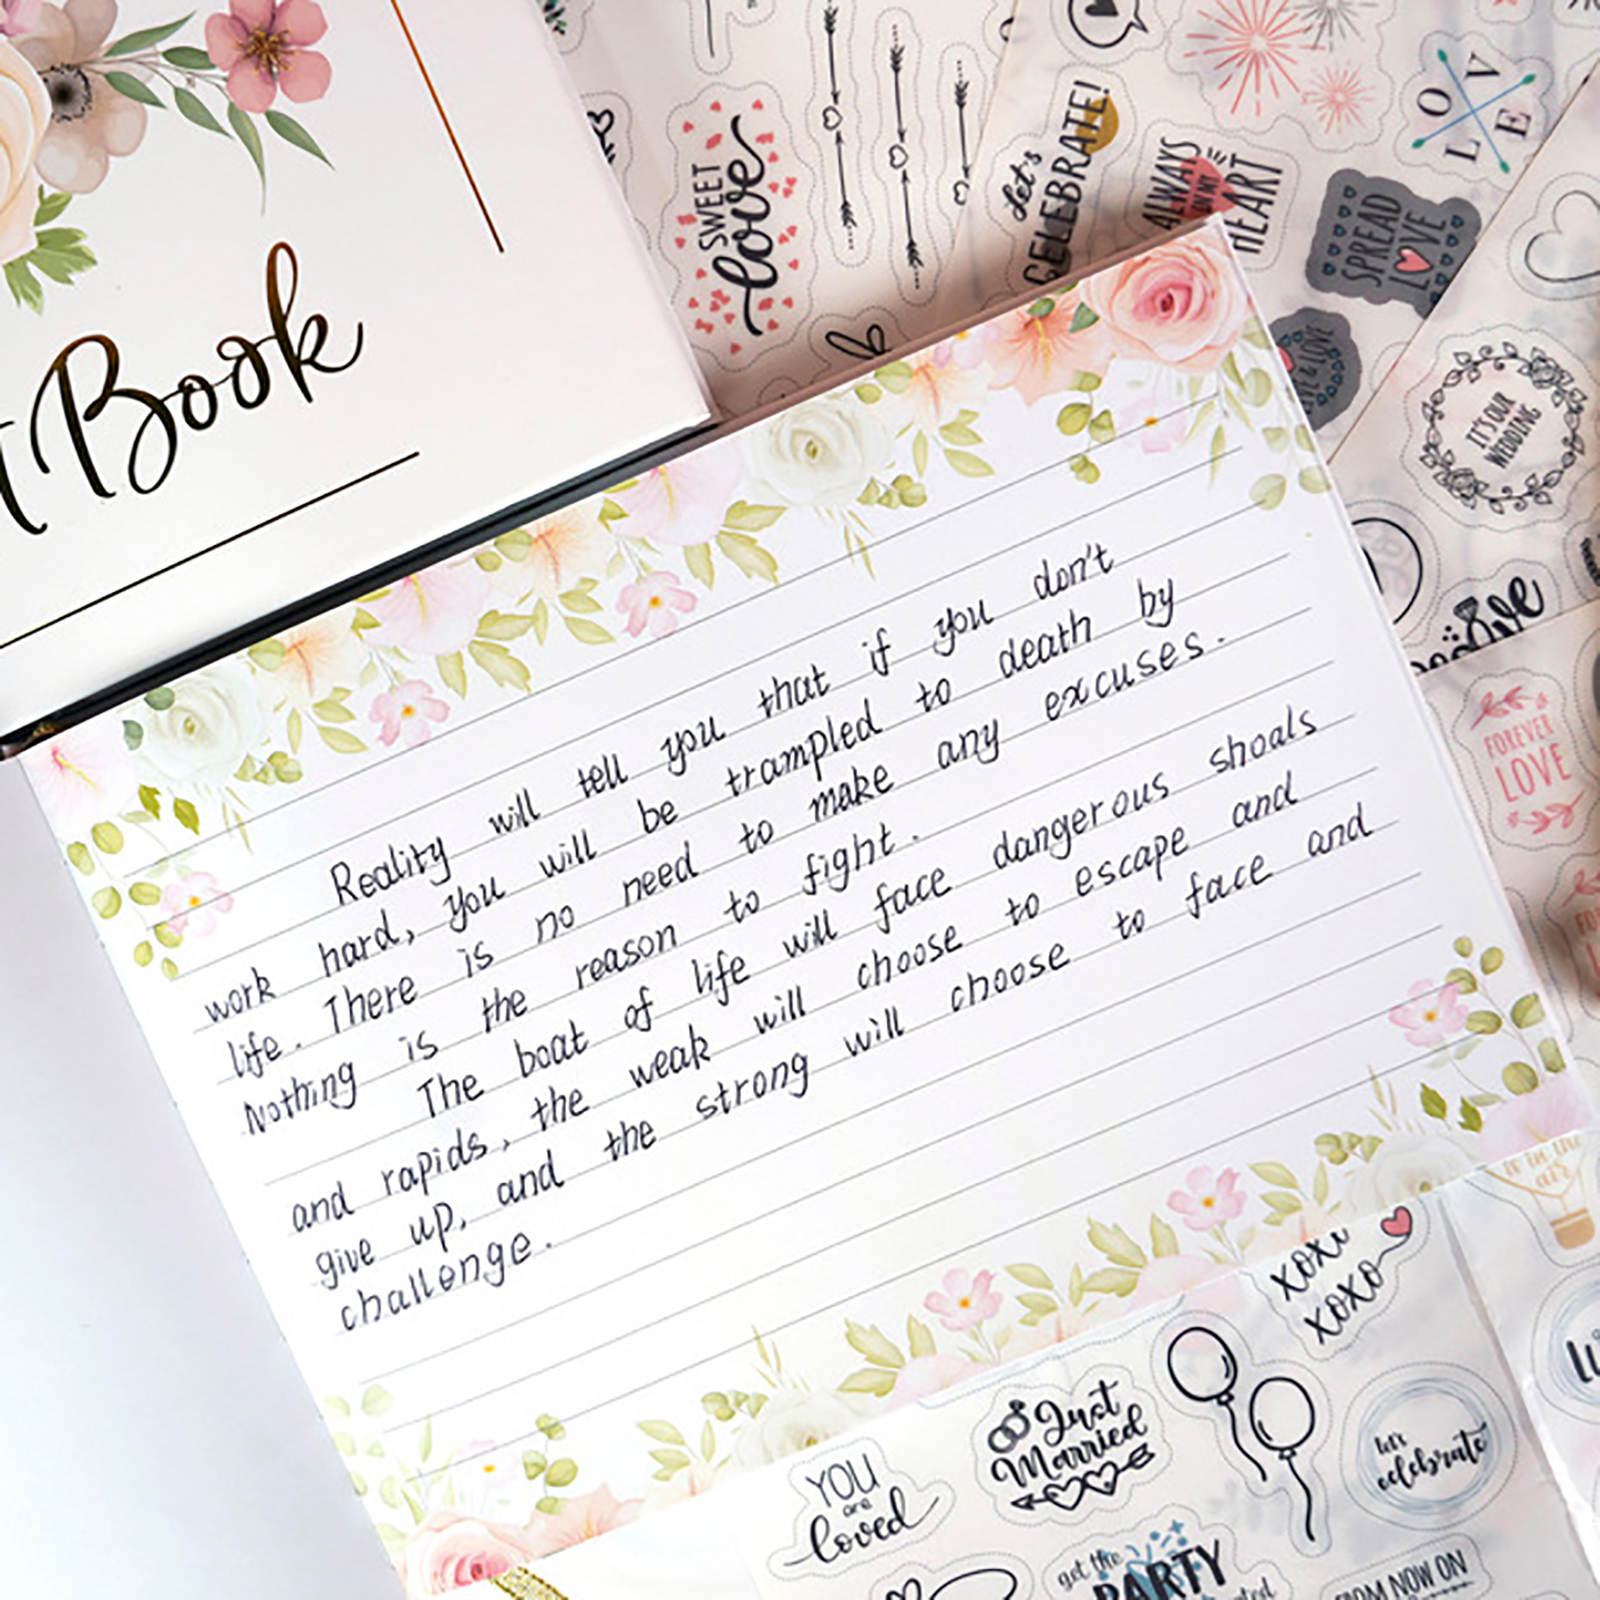 Book
SWEET
love
Let's
CELEBRATE!
ALWAYS
IN MY
HEART
LOVE
SPREAD
LOVE
& LOVE
IT'S OUR
WEDDING
FOREVER
LOVE
Reality will tell you that if you don't
work hard, you will be trampled to death by
life. There is no need to make any excuses.
Nothing is the reason to fight.
The boat of life will face dangerous shoals
and rapids, the weak will choose to escape and
give up, and the strong will choose to face and
challenge.
air
xoxo
xoxo
Just
Married
YOU
are
loved
let's
celebrate
get the
PARTY
FROM NOW ON